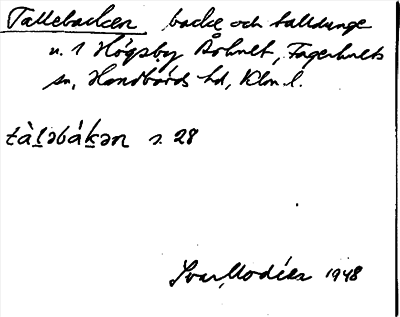 Tallebacken backe och talldunge
u. 1 Högsby Bohult, Fagerhults
sn, Handbörds hd, Klm l.
tàl̠əbák̠ən s. 28
Ivar Modéer 1948